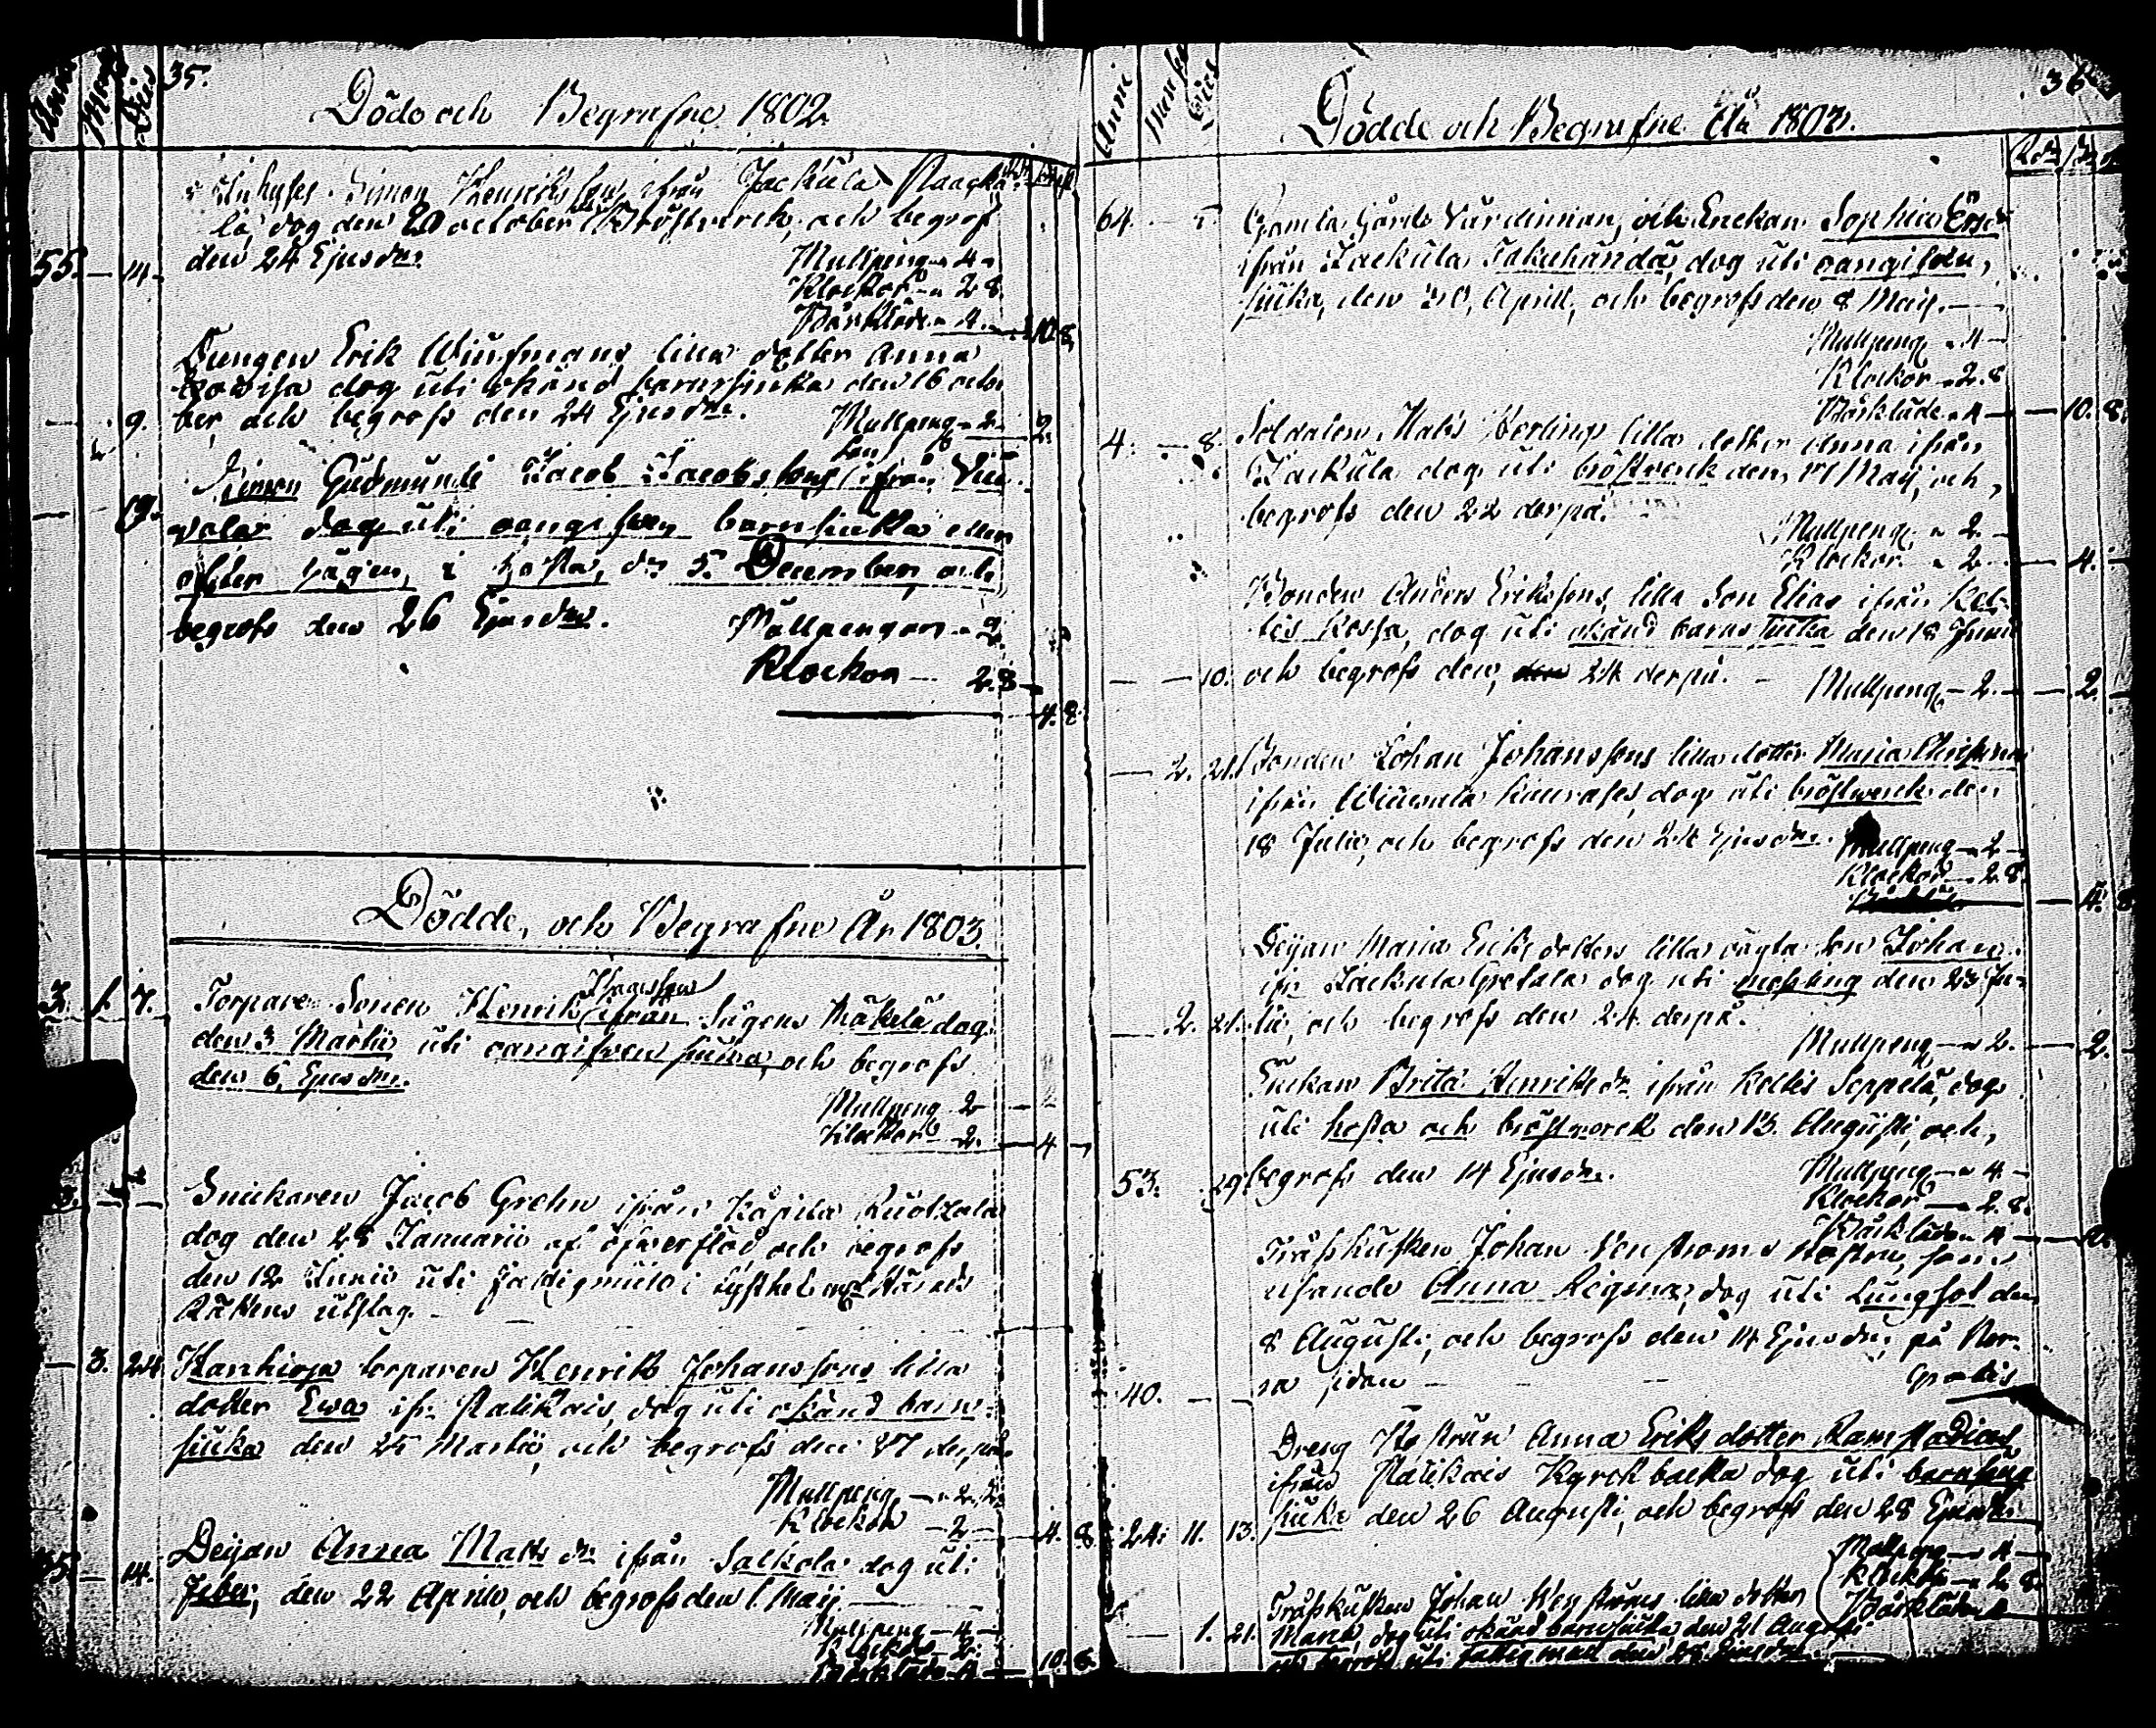 Anni Mens Dies 35.
Döde och Begrafne 1802.
Inhyses Simon Henrichsson ifrån Jackula Raacka
la, dog den 20 october Bröstverck, och begrofs
55. — 14. den 24 Ejusdm
Mullpeng 4
Klockor 2 8
Bårkläde 4 10. 8.
Drengen Erik Wiufmans lilla dotter Anna
Lowisa dog uti okänd barnsiuka den 16 octo
— 9. ber, och begrofs den 24 Ejusdm.
Mullpeng 2 2.
Son
Simon Gudmunds Jacob Jacobsson ifrån
— 19. dog uti oangifven barnsiuka eller
efter sägen, i hosta, dn 5. December, och
begrofs den 26 Ejusdm.
Mullpengar 2
Klockor 2. 8
4. 8
Dödde, och Begrafne År 1803.
Ifraelson
3. 1. 7. Torpare Sonen Henrik ifrån Sägens Mäkelä dog
den 3 Martii uti oangifven siuka, och begrofs
den 6. Ejusdm.
Mullpeng 2
Klockor 2. 4
Snickaren Jacob Grehn ifrån Ruokala
dog den 28 Januarii af öfwerflöd och begrofs
den 12 Junii uti
Rättens utslag.
— 3. 24 torparen Henrik Johanssons lilla
dotter Ewa ifr. Ratikais, dog uti okänd barn
siuka den 25 Martii, och begrofs den 27 derpå
Mullpeng 2.
Klockor 2 4. 8
— 14. Deijan Anna Matts dr ifrån Salkola dog uti
Feber, den 22 Aprill, och begrofs den 1. Maij
Mullpeng 4
Klockor 2.
Bårkläde 4 10. 8
Anni Dies 36
Dödde och Begrafne År 1803.
64. Gamla Gårds Värdinnan, och Enckan Sophia Ersdr
ifrån Jackula Takuhanda, dog uti oangifven,
siuka, den 30, Aprill, och begrofs den 8 Maij.
Mullpeng 4
Klockor 2. 8
Bårkläde 4 10. 8.
4. — 8. Soldaten Mats Verlings lilla dotter Anna ifrån
Jackula dog uti bröstverck den Maij, och,
begrofs den 22 derpå.
Mullpeng 2.
Klockor 2 4.
Bonden Anders Erikssons lilla Son Elias ifrån Kel-
lis Kossa, dog uti okänd barns siuka den 18 Junii
— 10. och begrofs den, 24 derpå.
Mullpeng 2. 2.
— 2. 21. Bonden Johan Johanssons lilla dotter Maria
ifrån dog uti bröstwerck den
18 Julii, och begrofs den 24 Ejusdm.
Mullpeng 2
Klockor 2 8.
4. 8
Deijan Maria Eriks dotters lilla oägta Son Johan
ifr. Jackula dog uti mässling den 23 Ju-
— 2. 21. lii, och begrofs den 24 derpå.
Mullpeng 2. 2.
Enckan Brita Henriksdr ifrån Kellis Seppelä, dog
uti hosta och bröstverck den 13. Augusti, och,
53. 29. begrofs den 14 Ejusdm.
Mullpeng 4
Klockor 2. 8.
Bårkläde 4
Träskkusken Johan Wenstroms Hustru,
Anna Regina, dog uti Lungsot den
8 Augusti, och begrofs den 14 Ejusdm, på Nor-
40. — — ra sidan
Gratis
Dreng Hustrun Anna Eriks dotter
ifrån Ratikais Kyrckbacka dog uti barnsäng
24. 11. 13. siuka den 26 Augusti, och begrofs den 28 Ejusdm
Mullpeng 4
Klockor 2 8.
Bårkläde 4
Träskkusken Johan Wenstroms lilla dotter
— 1. 21. Maria, dog uti okänd barnsiuka den 21 Augusti
och begrofs uti den 28 Ejusdm